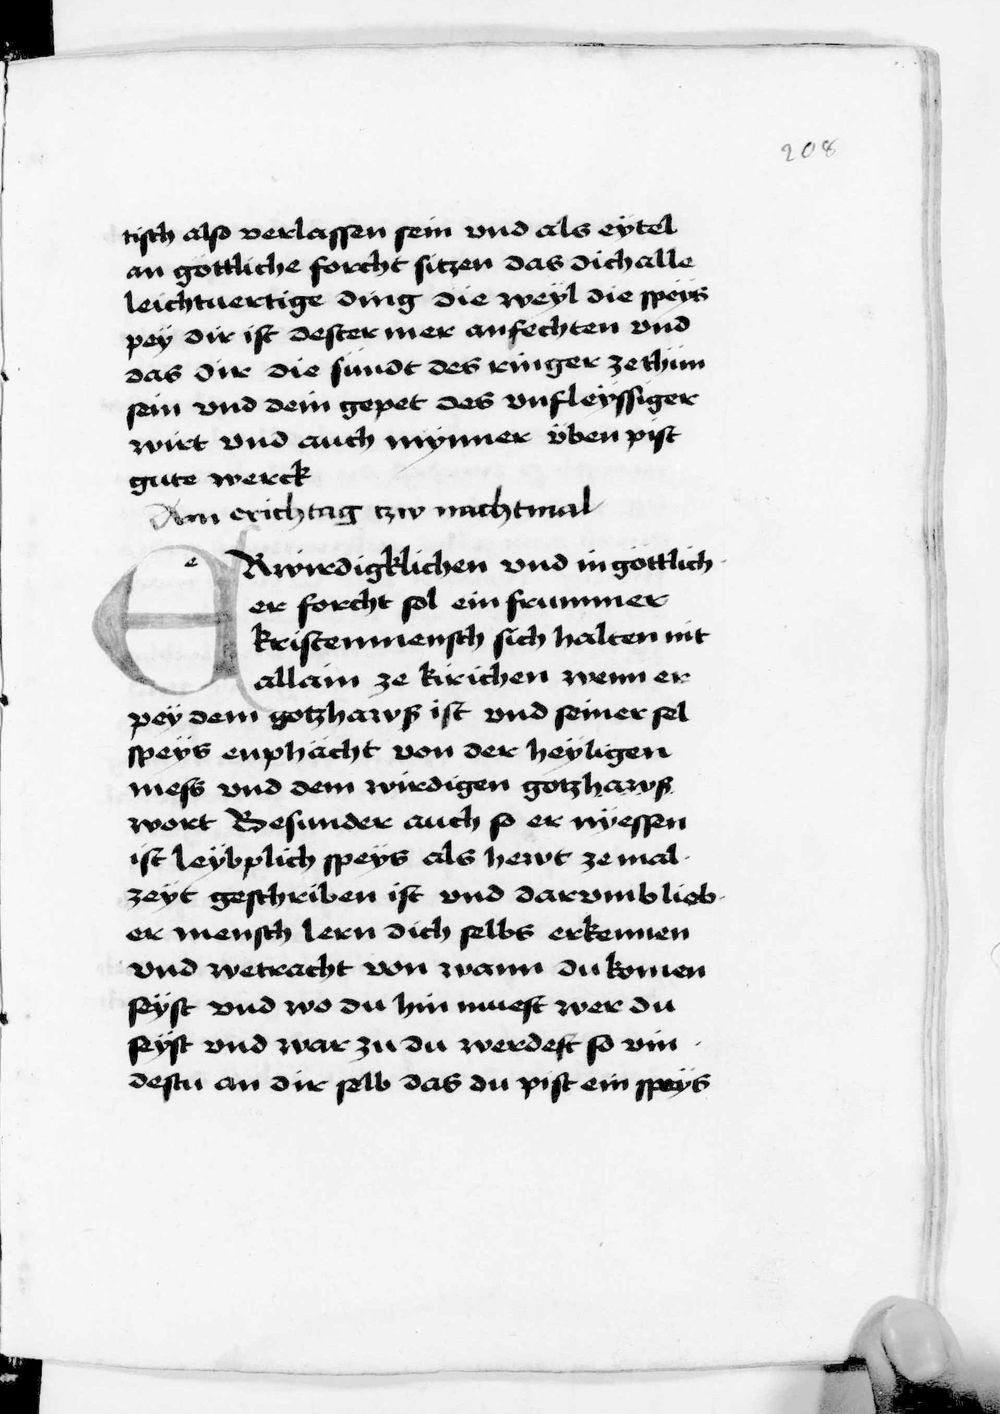 208
tisch also verlassen sein vnd als eytel
an göttliche forcht sitzen das dich alle
leichtuertige ding die weyl die speys
pey dir ist dester mer anfechten vnd
das dir die sündt des ringer ze thün
sein vnd dein gepet des vnfleyssiger
wirt vnd auch mynner üben pist
gute werck
Am erichtag tzw nachtmal
ERwirdigklichen vnd in göttlich
er forcht sol ein frummer
kristenmensch sich halten nit
allain ze kirichen wenn er
pey dem gotzhawß ist vnd seiner sel
speys enphächt von der heyligen
mess vnd dem wirdigen gotzhawß
wort Besunder auch so er nyessen
ist leyblich speys als hewt ze mal
zeyt geschriben ist vnd darvmb lieb
er mensch lern dich selbs erkennen
vnd wetracht von wann du komen
seyst vnd wo du hin muest wer du
seyst vnd war zu du werdest so vin
destu an dir selb das du pist ein speys